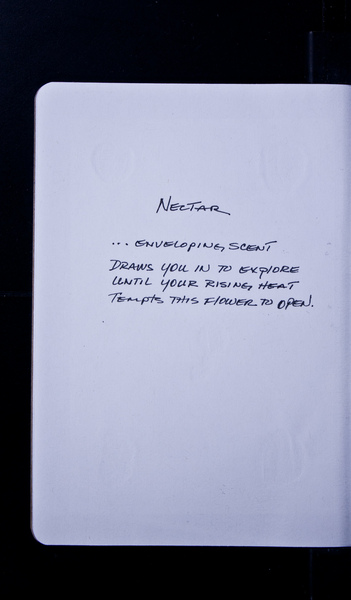 NECTAR
... ENVELOPING SCENT
DRAWS YOU IN TO EXPLORE
UNTIL YOUR RISING HEAT
TEMPTS THIS FLOWER TO OPEN.